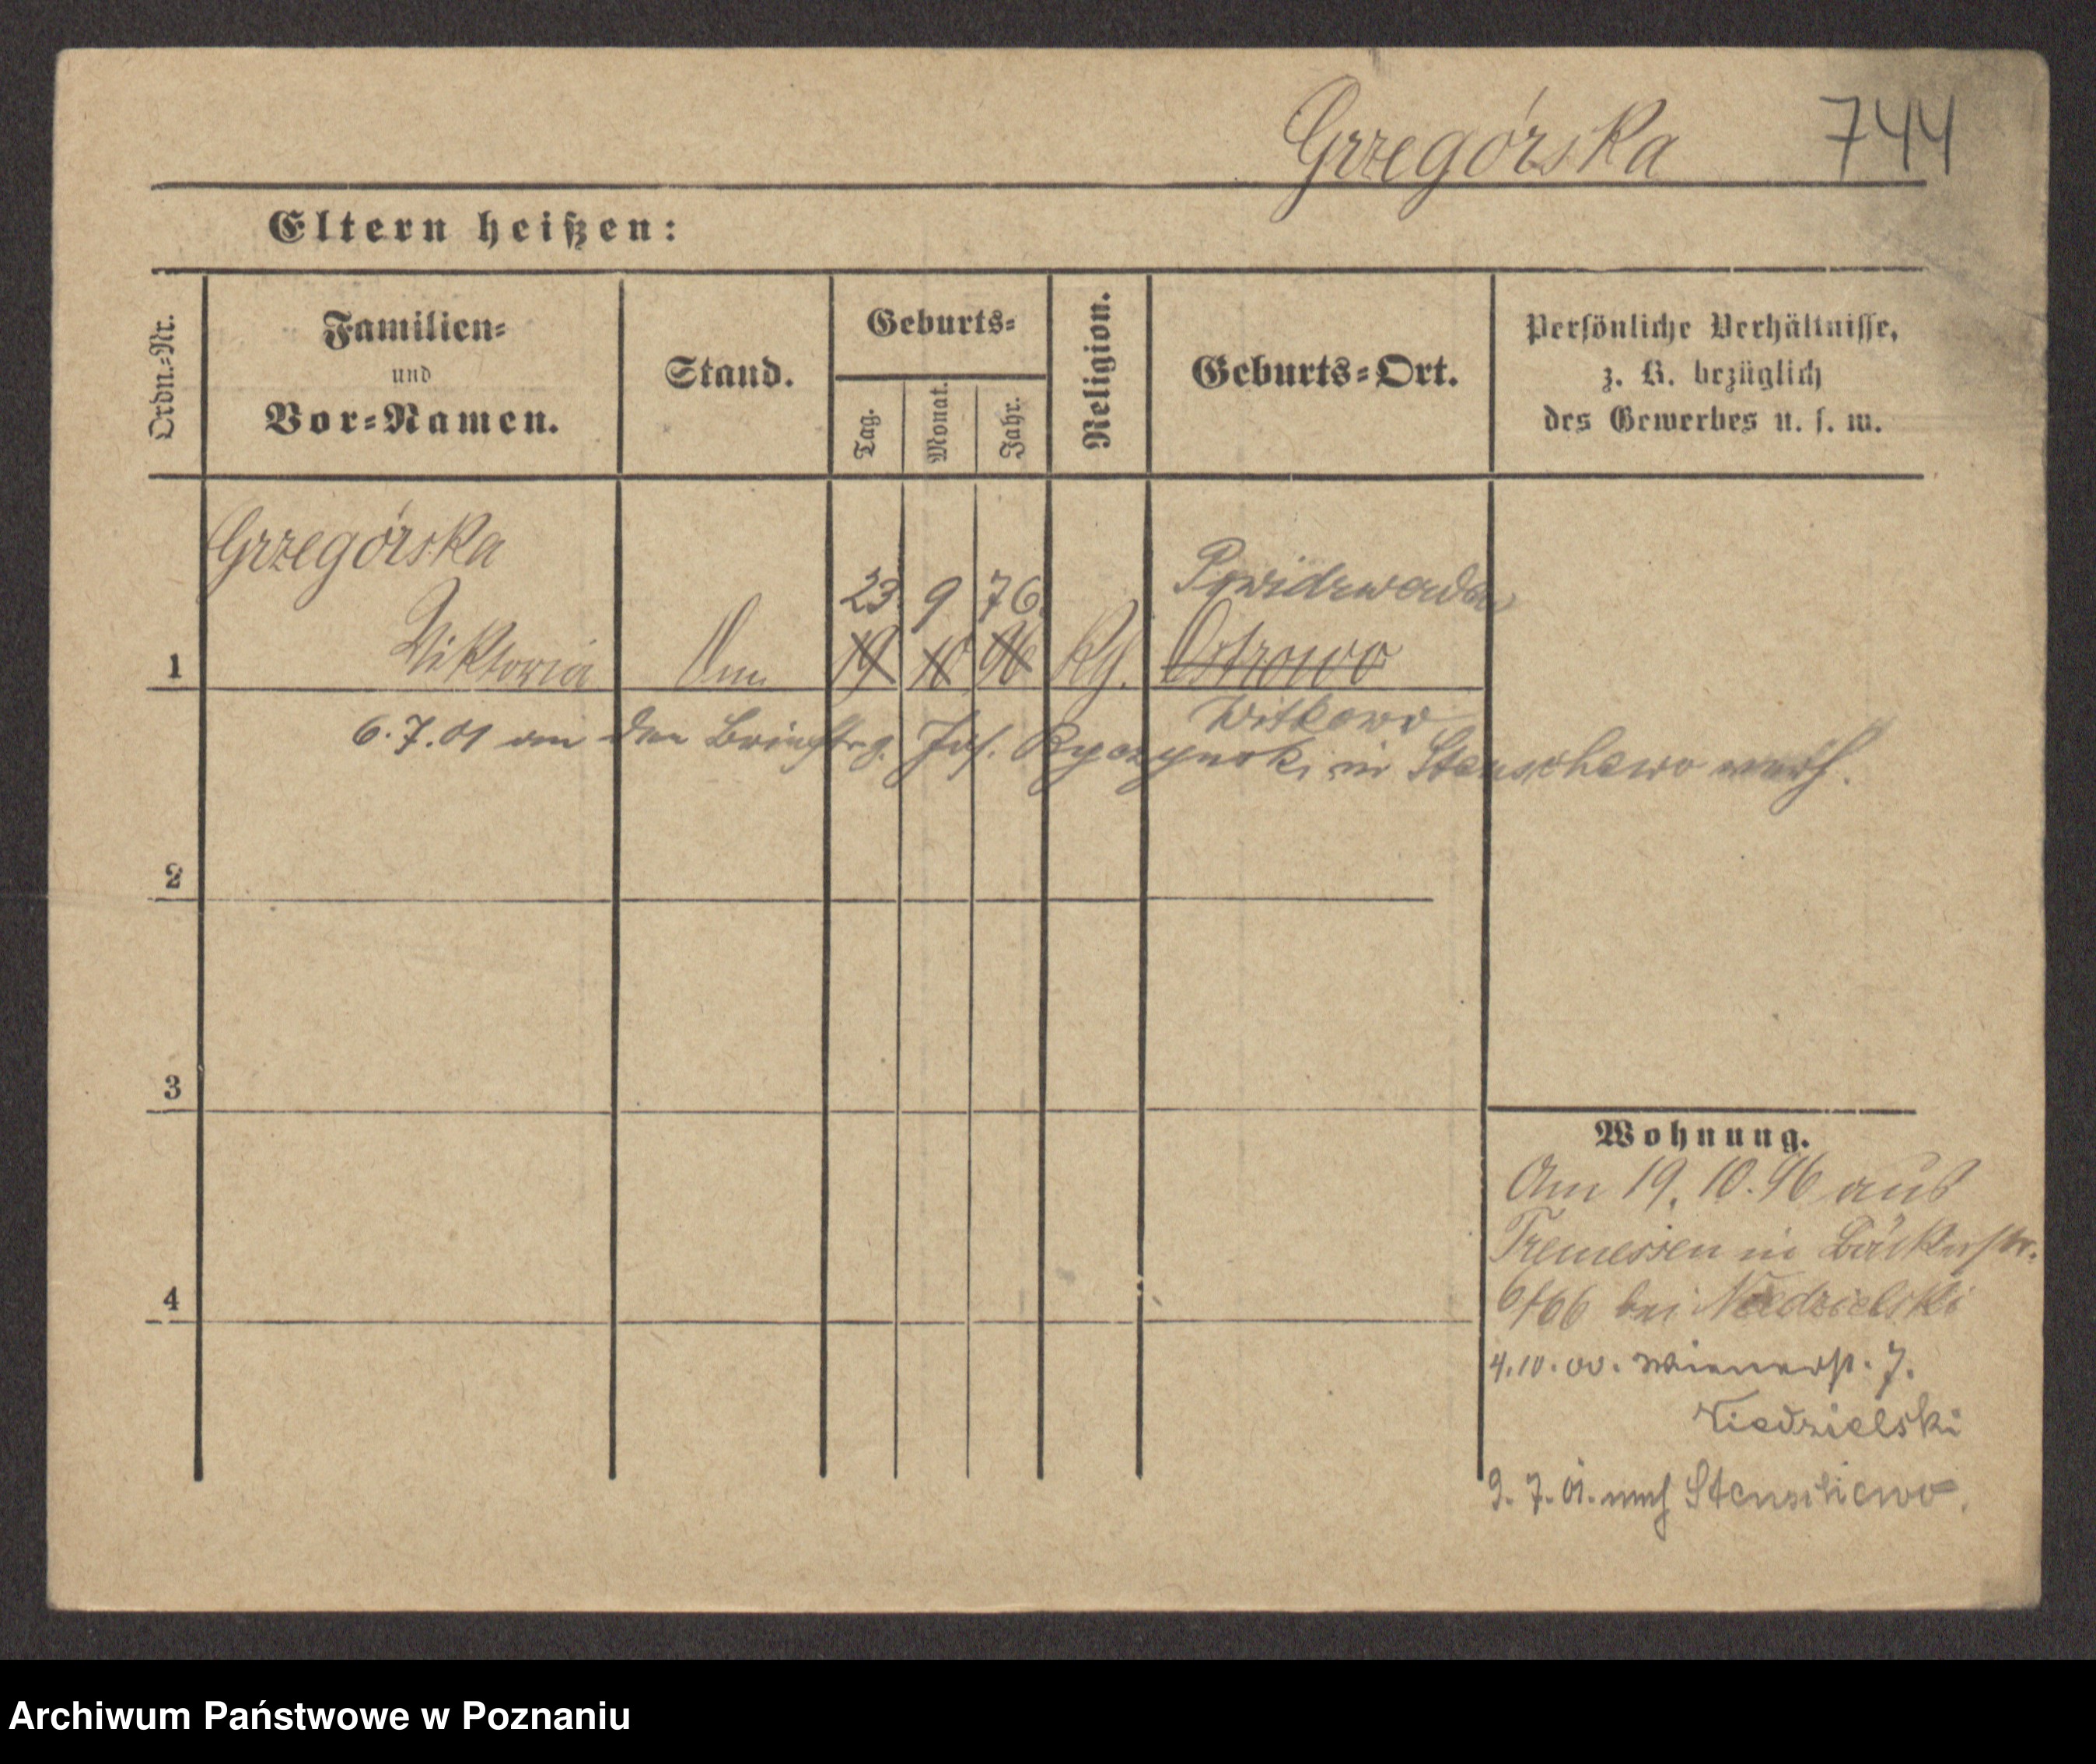 Grzegórska 744
Eltern heißen:
Ordn.=Nr.
Familien=
und
Vor=Namen.
Stand.
Geburts=
Tag.
Monat.
Jahr.
Religion.
Geburts=Ort.
Persönliche Verhältnisse,
z. B. bezüglich
des Gewerbes u. s. w.
Grzegórska
23. 9 76.
1 Viktoria 19 10 96 Ostrowo
Witkowo
6.7.01 an den Brieftrg. Jos. Ryczynski in Stenschewo verh.
2
3
4
Wohnung.
Am 19. 10. 96 aus
Tremessen in Bäckerstr.
6/66 bei Niedzielski
4.10.00. Wienerst. 7.
Niedzielski
9. 7. 01. nach Stenschewo.
Archiwum Państwowe w Poznaniu